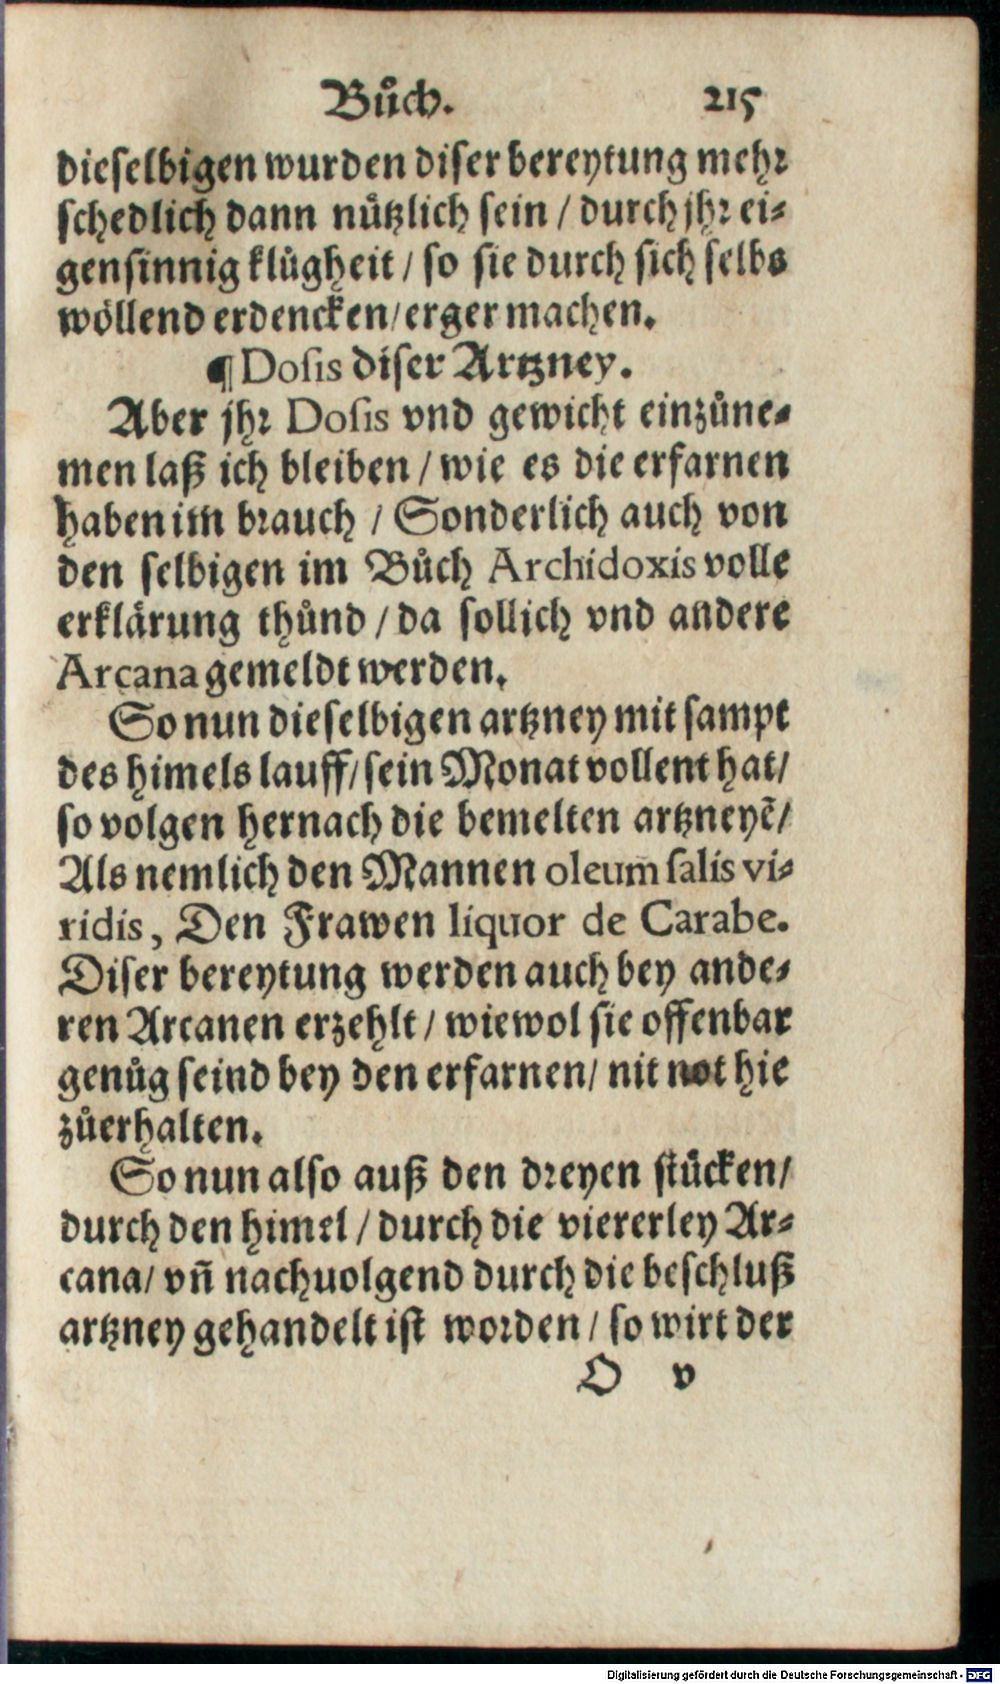 Bůch. 215
dieselbigen wurden diser bereytung mehr
schedlich dann nützlich sein / durch jhr ei⸗
gensinnig klůgheit / so sie durch sich selbs
wöllend erdencken/ erger machen.
¶ Dosis diser Artzney.
Aber jhr Dosis vnd gewicht einzůne⸗
men laß ich bleiben / wie es die erfarnen
haben im brauch / Sonderlich auch von
den selbigen im Bůch Archidoxis volle
erklärung thůnd / da sollich vnd andere
Arcana gemeldt werden.
So nun dieselbigen artzney mit sampt
des himels lauff/ sein Monat vollent hat/
so volgen hernach die bemelten artzneyẽ/
Als nemlich den Mannen oleum̃ salis vi⸗
ridis, Den Frawen liquor de Carabe.
Diser bereytung werden auch bey ande⸗
ren Arcanen erzehlt / wiewol sie offenbar
genůg seind bey den erfarnen/ nit not hie
zůerhalten.
So nun also auß den dreyen stücken/
durch den himel / durch die viererley Ar⸗
cana/ vñ nachuolgend durch die beschluß
artzney gehandelt ist worden / so wirt der
O v
Digitalisierung gefördert durch die Deutsche Forschungsgemeinschaft - DFG